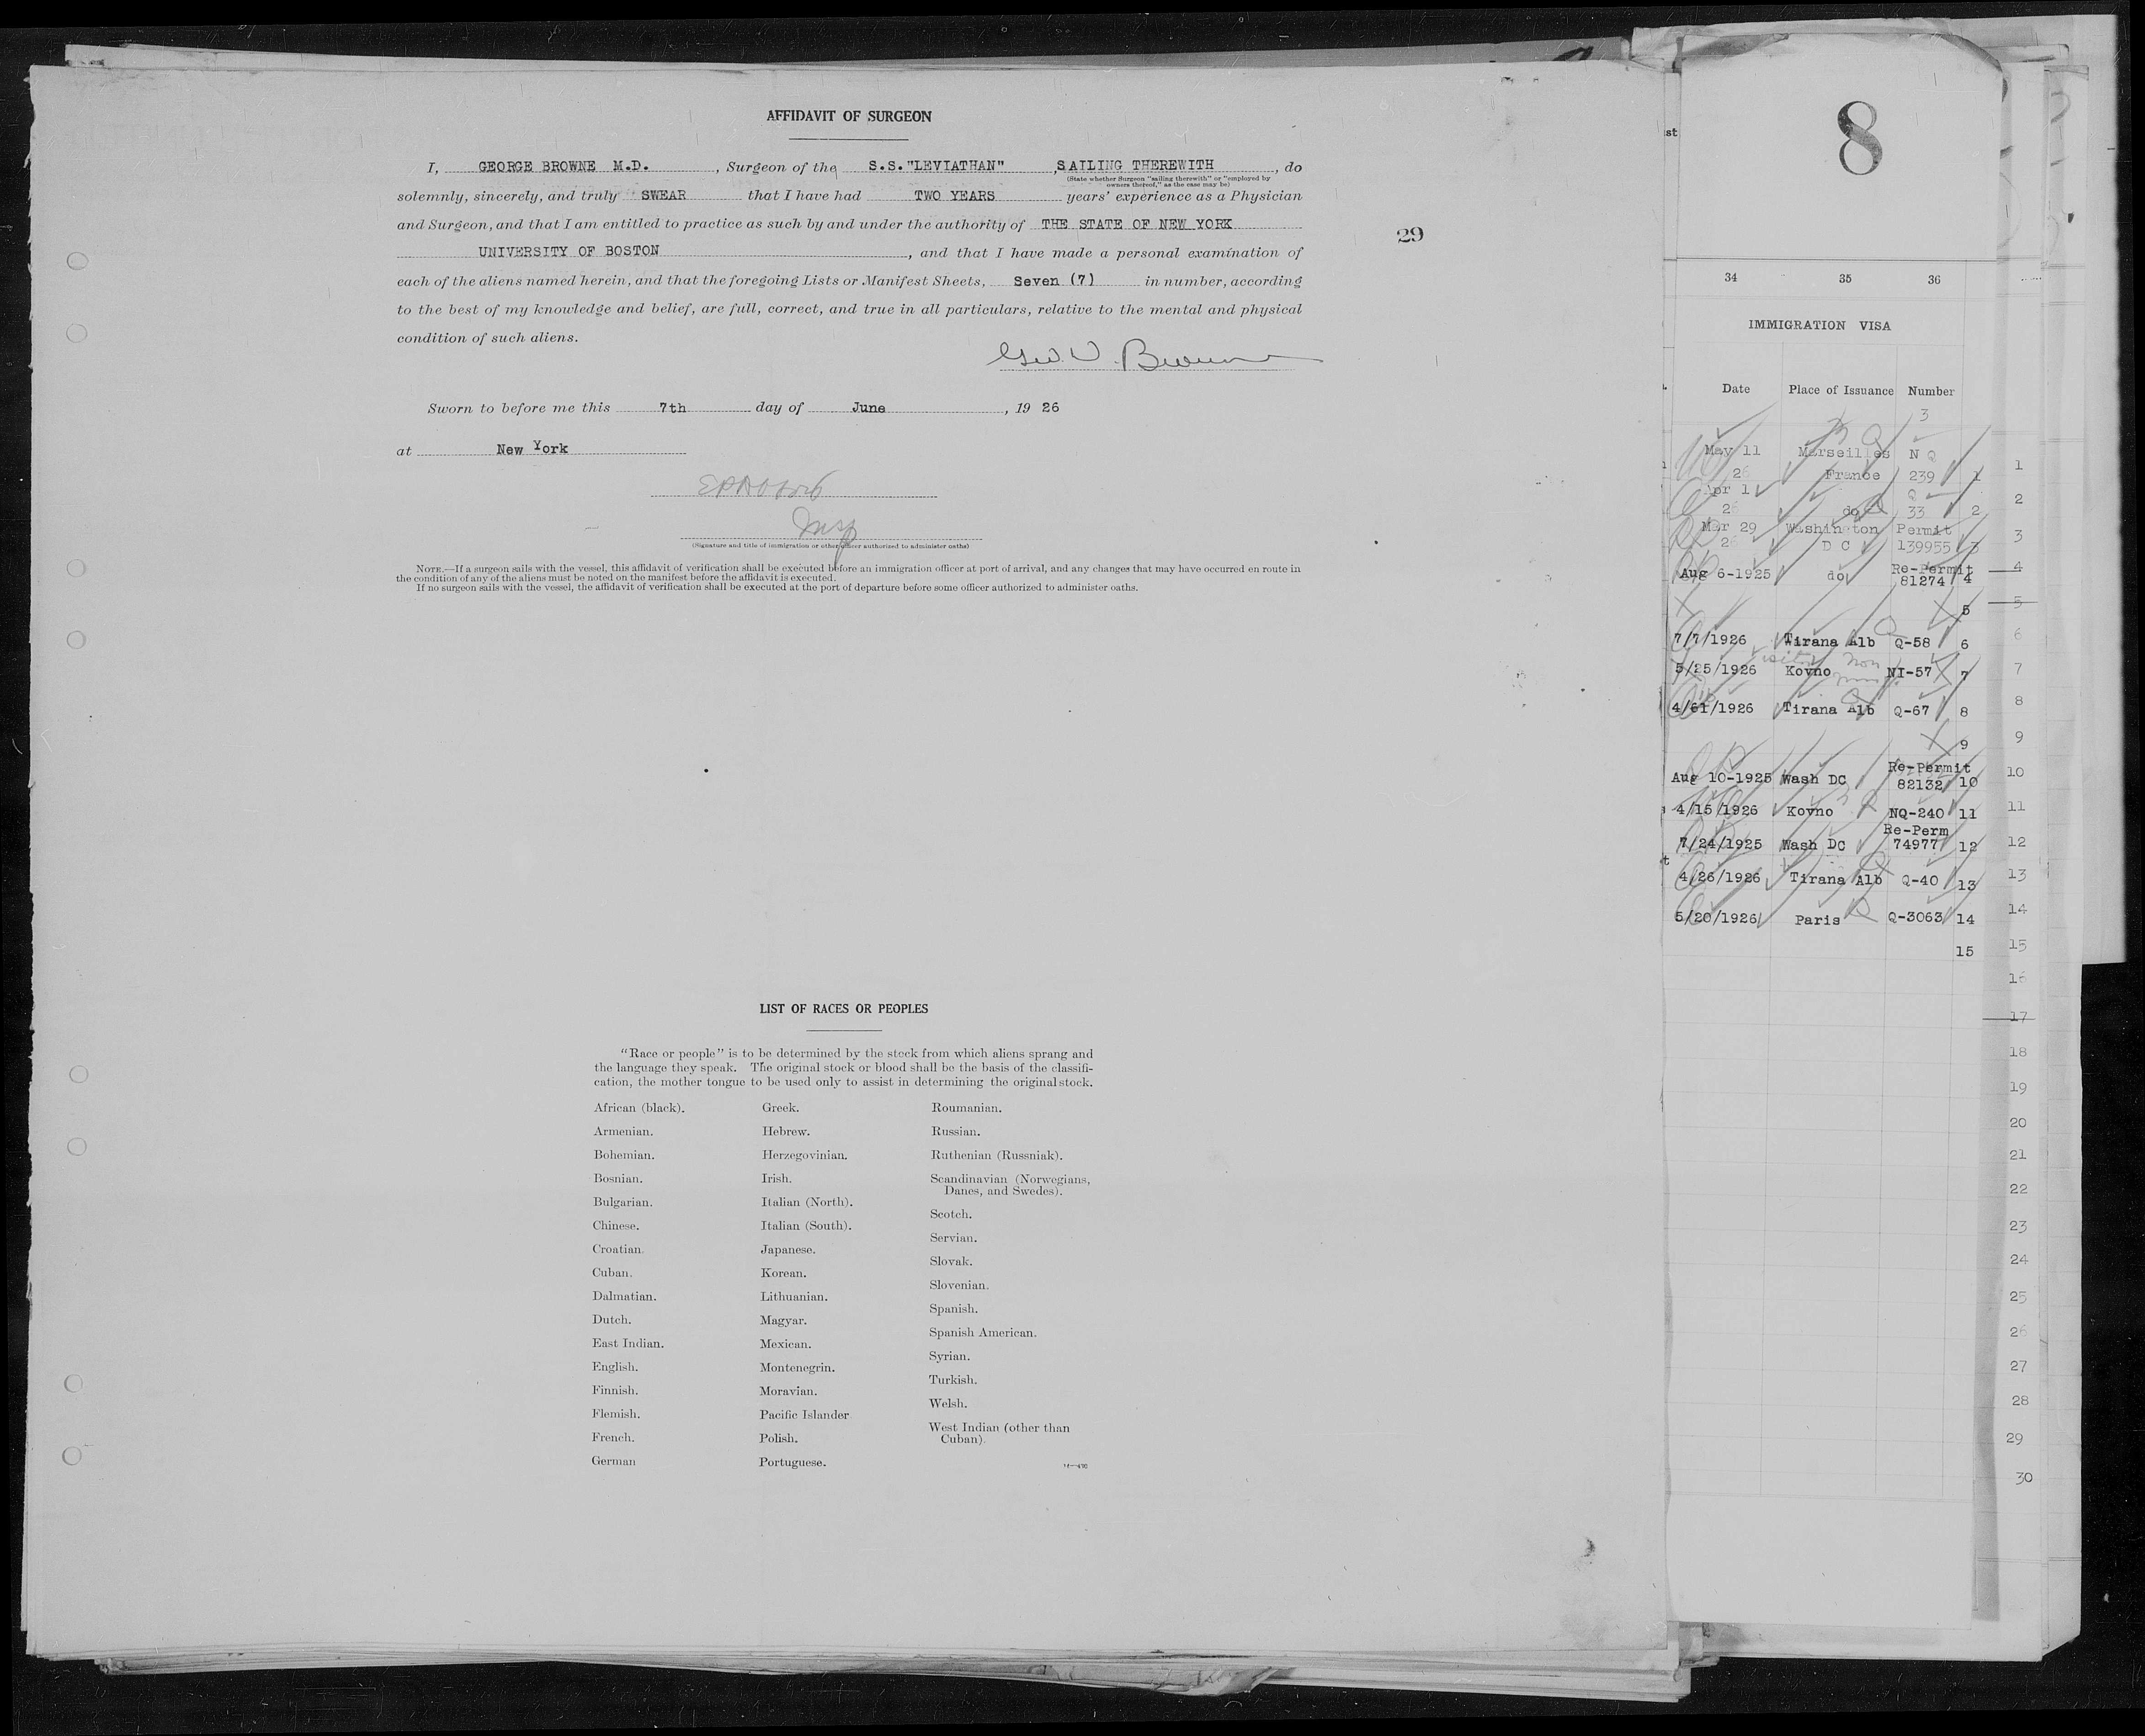 AFFIDAVIT OF SURGEON
I, GEORGE BROWNE M.D. , Surgeon of the S.S."LEVIATHAN" ,SAILING THEREWITH , do
(State whether Surgeon "sailing therewith" or "employed by
owners thereof," as the case may be)
solemnly, sincerely, and truly SWEAR that I have had TWO YEARS years' experience as a Physician
and Surgeon, and that I am entitled to practice as such by and under the authority of THE STATE OF NEW YORK
UNIVERSITY OF BOSTON , and that I have made a personal examination of
each of the aliens named herein, and that the foregoing Lists or Manifest Sheets, Seven (7) in number, according
to the best of my knowledge and belief, are full, correct, and true in all particulars, relative to the mental and physical
condition of such aliens.
Geo. V. Browne
Sworn to before me this 7th day of June , 19 26
at New York
Insp
(Signature and title of immigration or other officer authorized to administer oaths)
NOTE.—If a surgeon sails with the vessel, this affidavit of verification shall be executed before an immigration officer at port of arrival, and any changes that may have occurred en route in
the condition of any of the aliens must be noted on the manifest before the affidavit is executed.
If no surgeon sails with the vessel, the affidavit of verification shall be executed at the port of departure before some officer authorized to administer oaths.
29
LIST OF RACES OR PEOPLES
"Race or people" is to be determined by the stock from which aliens sprang and
the language they speak. The original stock or blood shall be the basis of the classifi-
cation, the mother tongue to be used only to assist in determining the original stock.
African (black).
Armenian.
Bohemian.
Bosnian.
Bulgarian.
Chinese.
Croatian.
Cuban.
Dalmatian.
Dutch.
East Indian.
English.
Finnish.
Flemish.
French.
German
Greek.
Hebrew.
Herzegovinian.
Irish.
Italian (North).
Italian (South).
Japanese.
Korean.
Lithuanian.
Magyar.
Mexican.
Montenegrin.
Moravian.
Pacific Islander
Polish.
Portuguese.
Roumanian.
Russian.
Ruthenian (Russniak).
Scandinavian (Norwegians,
Danes, and Swedes).
Scotch.
Servian.
Slovak.
Slovenian.
Spanish.
Spanish American.
Syrian.
Turkish.
Welsh.
West Indian (other than
Cuban).
8
st
34 35 36
IMMIGRATION VISA
Date Place of Issuance Number
3
May 11 Marseilles N Q
26 France 239 1
Apr 1 Q
26 do 33 2
Mar 29 Washington Permit
26 D C 139955 3
Re-Permit
Aug 6-1925 do 81274 4
5
7/7/1926 Tirana Alb Q-58 6
visitor Non
5/25/1926 Kovno NI-57 7
4/61/1926 Tirana Alb Q-67 8
9
Re-Permit
Aug 10-1925 Wash DC 82132 10
4/15/1926 Kovno NQ-240 11
Re-Perm
7/24/1925 Wash DC 74977 12
4/26/1926 Tirana Alb Q-40 13
5/20/1926 Paris Q-3063 14
15
1
2
3
4
5
6
7
8
9
10
11
12
13
14
15
16
17
18
19
20
21
22
23
24
25
26
27
28
29
30